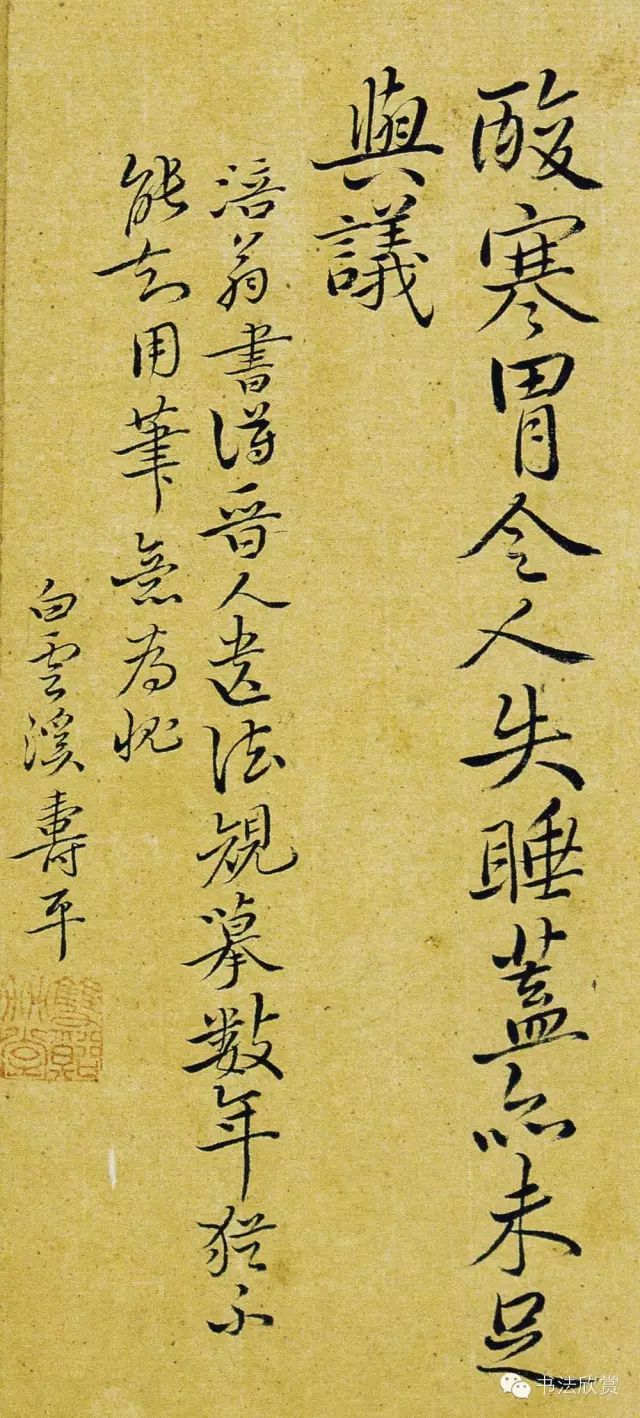 酸寒胃令人失睡蓋亦未足
與議
涪翁書得晋人遺法規摹数年猶不
能知用筆意為愧
白雲溪壽平
书法欣赏